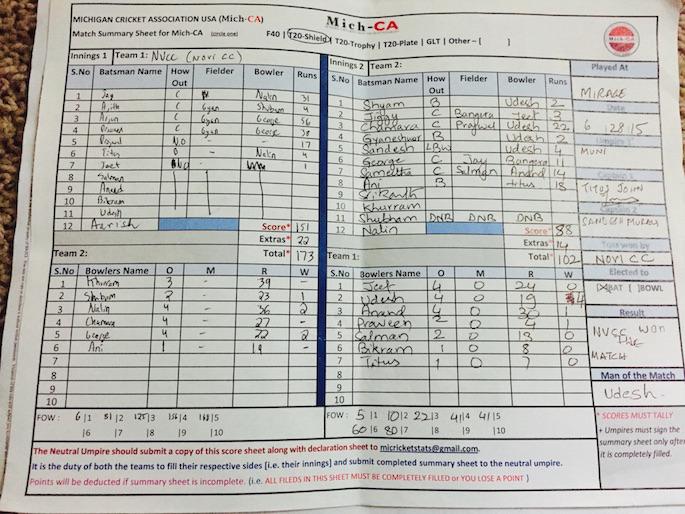 MICHIGAN CRICKET ASSOCIATION USA (Mich-CA)
Mich-CA
Match Summary Sheet for Mich-CA (circle one) F40 | T20-Shield | T20-Trophy | T20-Plate | GLT | Other – [ ]
Innings 1 Team 1: NVCC (NOVI CC)
S.No Batsman Name How Out Fielder Bowler Runs
1 Jay C Nalin 31
2 Ajith C Gyan Shubum 4
3 Arjun C Gyan George 56
4 C Gyan George 38
5 N.O - - 17
6 Titus - Nalin 4
7 Jeet N.O 1
8 Salman
9 Anand
10 Bikram
11 Udesh
12
Score* 151
Extras* 22
Total* 173
Team 2:
S.No Bowlers Name O M R W
1 Khurram 3 - 39 -
2 Shubum 3 - 23 1
3 Nalin 4 - 36 2
4 Chamara 4 - 27 -
5 George 4 - 22 2
6 Ani 1 - 19 -
7
8
9
10
FOW : 6|1 51|2 125|3 156|4 168|5
|6 |7 |8 |9 |10
Innings 2 Team 2:
S.No Batsman Name How Out Fielder Bowler Runs
1 Shyam B Udesh 2
2 Jiggy C Bangera Jeet 3
3 Chamara C Prajwel Udesh 22
4 Gyaneshwar B Udesh 2
5 Sandesh LBW Udesh 4
6 George C Jay Bangera 11
7 Sameetha C Salman Anand 14
8 Ani B Titus 18
9 Srikanth
10 Khurram
11 Shubham DNB DNB DNB
12 Nalin
Score* 88
Extras* 14
Total* 102
Team 1:
S.No Bowlers Name O M R W
1 Jeet 4 0 24 0
2 Udesh 4 0 19 4
3 Anand 4 0 30 1
4 Praveen 2 0 4 1
5 Salman 2 0 13 0
6 Bikram 1 0 8 0
7 Titus 1 0 7 0
8
9
10
FOW : 5|1 10|2 22|3 41|4 41|5
60|6 80|7 |8 |9 |10
Mich-CA
Played At
MIRAGE
Date
6 28 15
Umpire 1
MUNI
Captain 1
TITUS JOHN
Captain 2
SANDESH MURALY
Toss won by
NOVI CC
Elected to
[X]BAT [ ]BOWL
Result
NVCC WON
THE
MATCH
Man of the Match
Udesh
* SCORES MUST TALLY
+ Umpires must sign the
summary sheet only after
it is completely filled.
The Neutral Umpire should submit a copy of this score sheet along with declaration sheet to micricketstats@gmail.com.
It is the duty of both the teams to fill their respective sides [i.e. their innings] and submit completed summary sheet to the neutral umpire.
Points will be deducted if summary sheet is incomplete. (i.e. ALL FILEDS IN THIS SHEET MUST BE COMPLETELY FILLED or YOU LOSE A POINT )